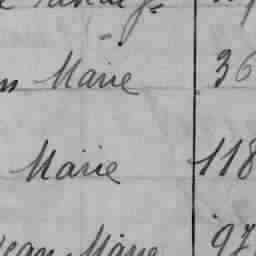 Marie 36
Marie 118
Jean Marie 97